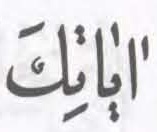 اٰيٰاتِكَ